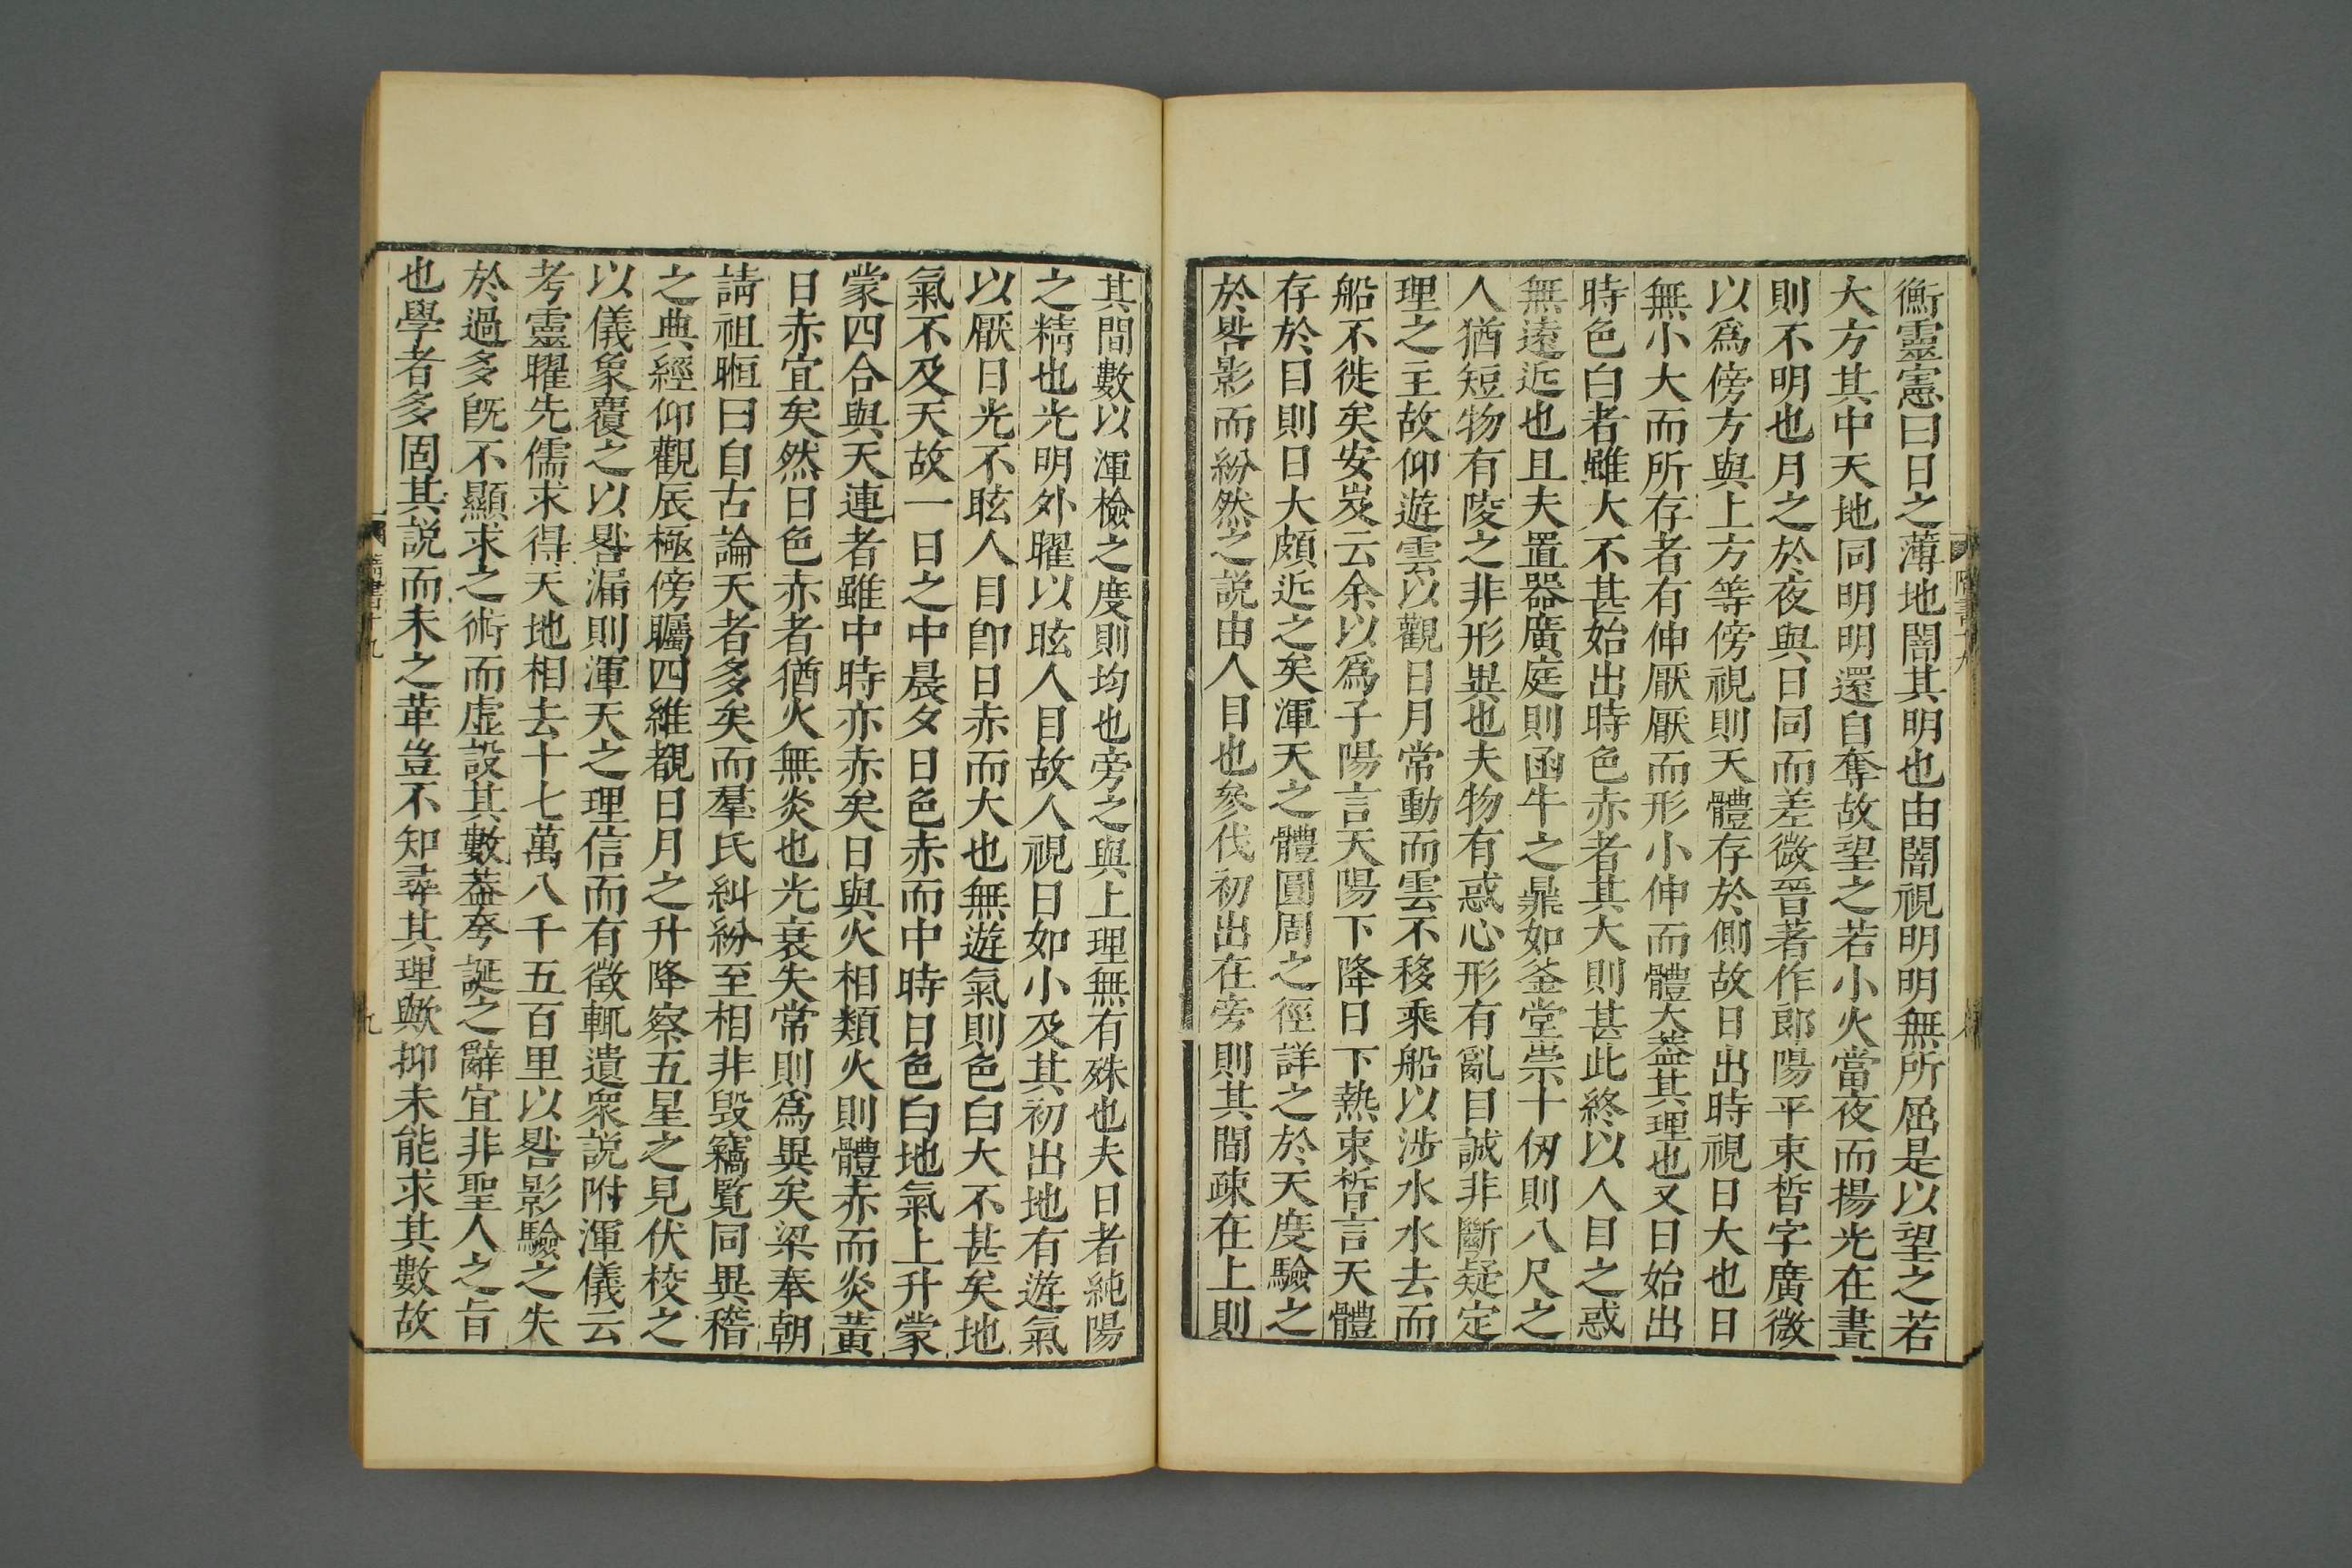 衡靈憲曰日之薄地闇其明也由闇視明明無所屈是以望之若
大方其中天地同明明還自奪故望之若小火當夜而揚光在晝
則不明也月之於夜與日同而差微晉著作郎陽平束晳字廣微
以爲傍方與上方等傍視則天體存於側故日出時視日大也日
無小大而所存者有伸厭厭而形小伸而體大葢其理也又日始出
時色白者雖大不甚始出時色赤者其大則甚此終以人目之惑
無遠近也且夫置器廣庭則函牛之鼎如釜堂崇十仞則八尺之
人猶短物有陵之非形異也夫物有惑心形有亂目誠非斷疑定
理之主故仰遊雲以觀日月常動而雲不移乘船以涉水水去而
船不徙矣安岌云余以爲子陽言天陽下降日下熱束晳言天體
存於目則日大頗近之矣渾天之體圓周之徑詳之於天度驗之
於晷影而紛然之説由人目也參伐初出在旁則其間疎在上則
其間數以渾檢之度則均也旁之與上理無有殊也夫日者純陽
之精也光明外曜以眩人目故人視日如小及其初出地有遊氣
以厭日光不眩人目卽日赤而大也無遊氣則色白大不甚矣地
氣不及天故一日之中晨夕日色赤而中時日色白地氣上升蒙
蒙四合與天連者雖中時亦赤矣日與火相類火則體赤而炎黃
日赤宜矣然日色赤者猶火無炎也光衰失常則爲異矣梁奉朝
請祖暅曰自古論天者多矣而羣氏糾紛至相非毀竊覽同異稽
之典經仰觀辰極傍矚四維覩日月之升降察五星之見伏校之
以儀象覆之以晷漏則渾天之理信而有徵輒遺衆説附渾儀云
考靈曜先儒求得天地相去十七萬八千五百里以晷影驗之失
於過多旣不顯求之術而虛設其數葢夸誕之辭宜非聖人之旨
也學者多固其説而未之革豈不知尋其理歟抑未能求其數故
隋書十九
九